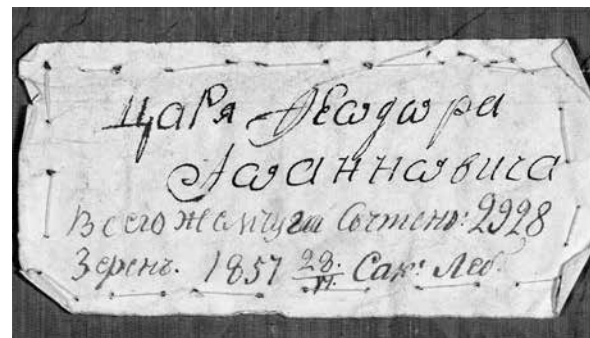 Царя Ѳеѡдѡра
Іѡаннѡвича
Всего жемчуга Сочтено: 2928
Зеренъ. 1857 28./VI. Сак: Леб.